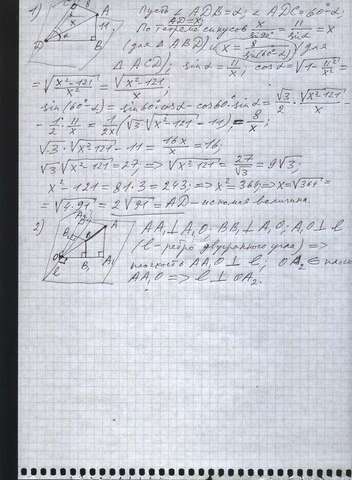 1) Пусть ∠ADB=α; ∠ADC=60°-α
AD=x
По теореме синусов x/sin90° = 11/sinα = x
(для △ABD) и x = 8/sin(60°-α) (для
△ACD); sinα = 11/x; cosα = √(1 - 11²/x²) =
= √((x²-121)/x²) = √(x²-121)/x;
sin(60°-α) = sin60°cosα - cos60°sinα = √3/2 · √(x²-121)/x -
- 1/2 · 11/x = 1/2x (√3√(x²-121) - 11) = 8/x;
√3·√(x²-121) - 11 = 16x/x = 16;
√3√(x²-121) = 27; => √(x²-121) = 27/√3 = 9√3;
x²-121 = 81·3 = 243; => x² = 364; => x = √364 =
= √4·91 = 2√91 = AD - искомая величина.
2) AA₁⊥A₁O; BB₁⊥A₁O; A₁O⊥l
(l - ребро двугранного угла) =>
плоскость AA₁O⊥l; OA₂∈плоск
AA₁O => l⊥OA₂.
A
11
B
D
α
x
8
A₂
B₂
A
B
O
l
B₁
A₁